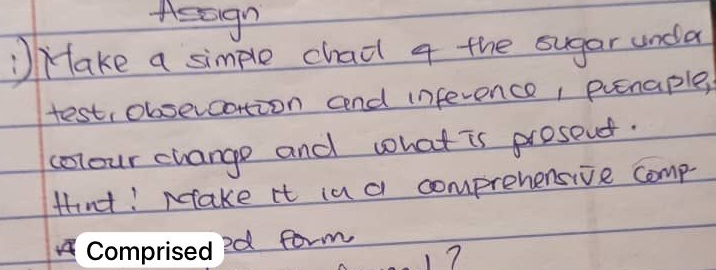 Assign
i) Make a simple chart of the sugar under
test, observation and inference, principle,
colour change and what is present.
Hint! Make it in a comprehensive comp-
Comprised ed form
1?